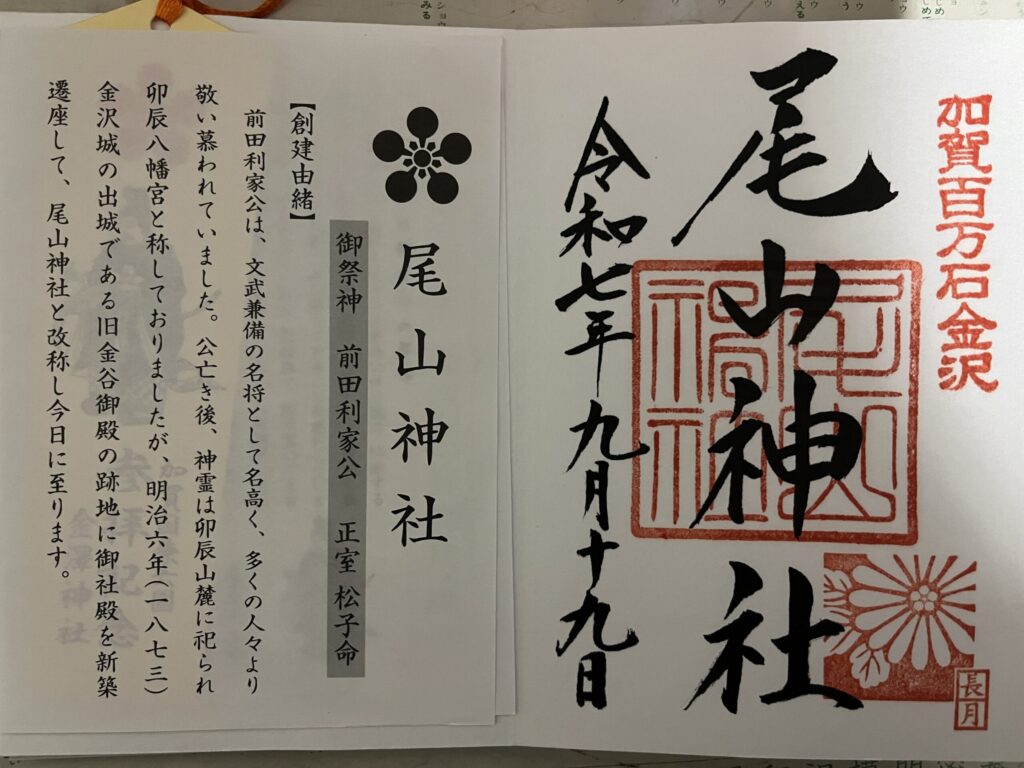 加賀百万石金沢
尾山神社
令和七年九月十九日
長月
尾山神社
御祭神　前田利家公　正室 松子命
【創建由緒】
前田利家公は、文武兼備の名将として名高く、多くの人々より
敬い慕われていました。公亡き後、神霊は卯辰山麓に祀られ
卯辰八幡宮と称しておりましたが、明治六年（一八七三）
金沢城の出城である旧金谷御殿の跡地に御社殿を新築
遷座して、尾山神社と改称し今日に至ります。